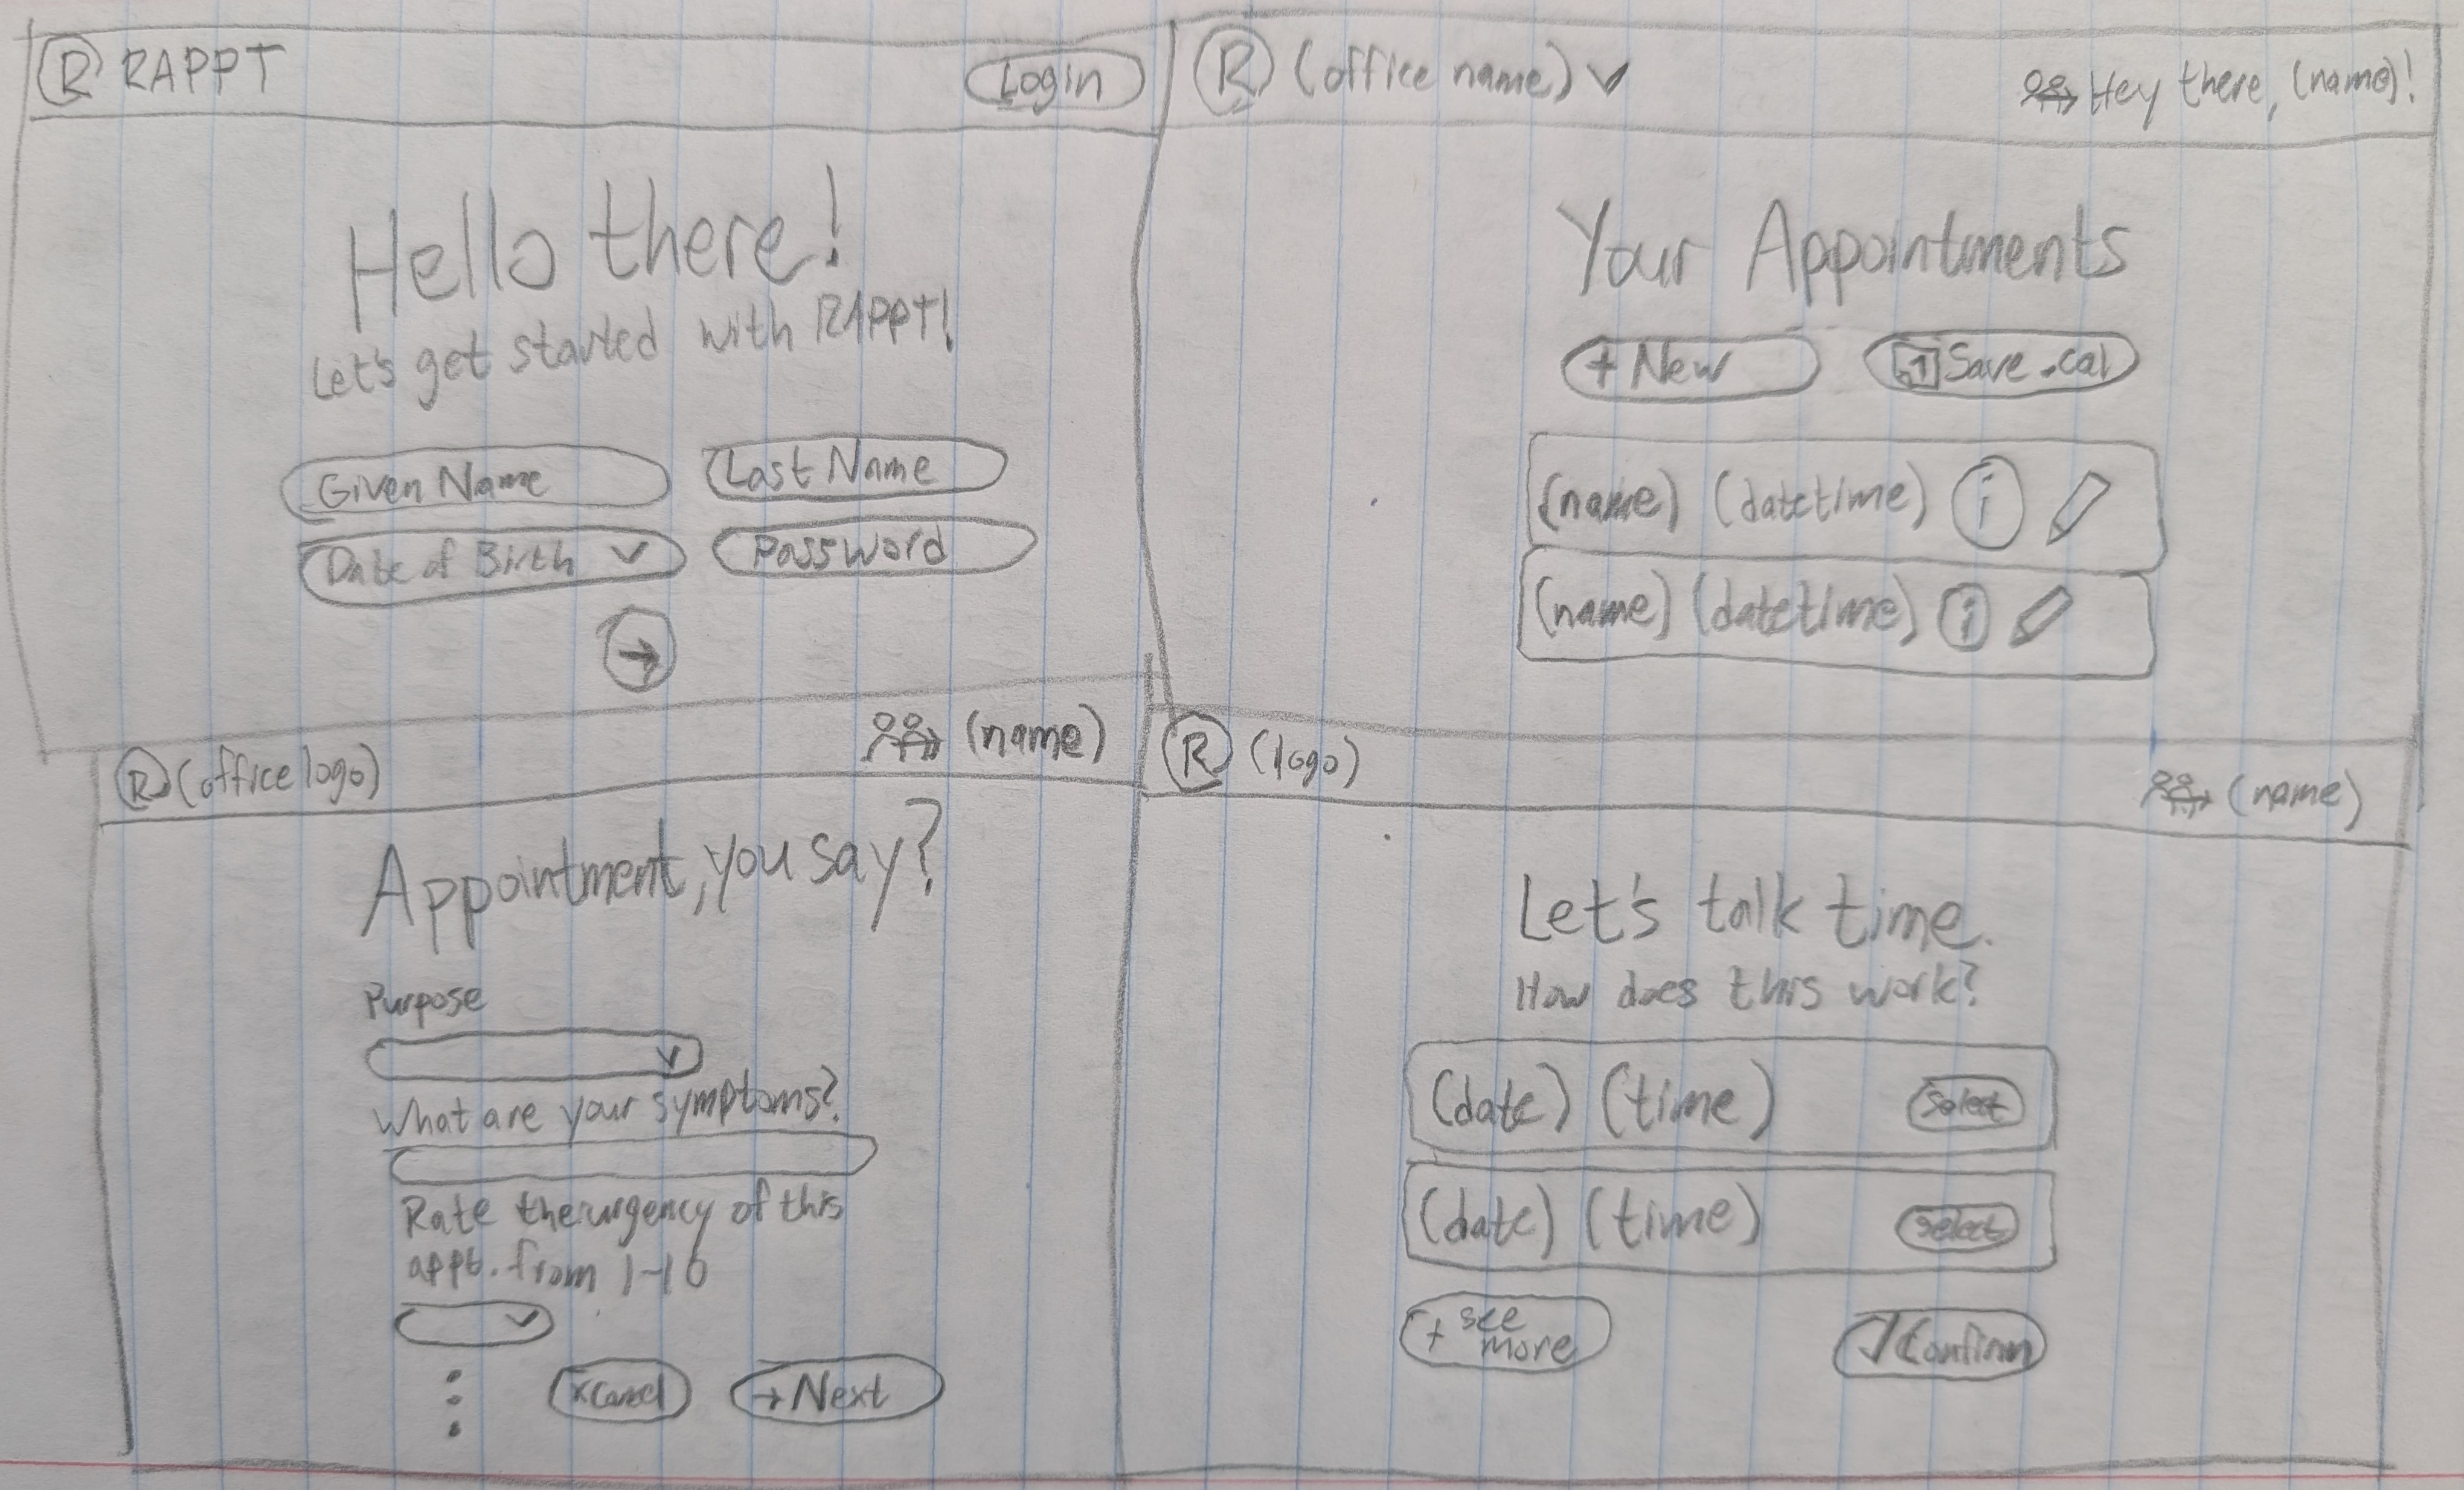 R RAPPT
Login
Hello there!
Let's get started with RAPPT!
Given Name
Last Name
Date of Birth
Password
R (office name)
Hey there, (name)!
Your Appointments
+ New
Save .cal
(name) (datetime) i
(name) (datetime) i
R (office logo)
(name)
Appointment, you say?
Purpose
What are your symptoms?
Rate the urgency of this
appt. from 1-10
x Cancel
→ Next
R (logo)
(name)
Let's talk time.
How does this work?
(date) (time)
Select
(date) (time)
Select
+ see
more
✓ Confirm